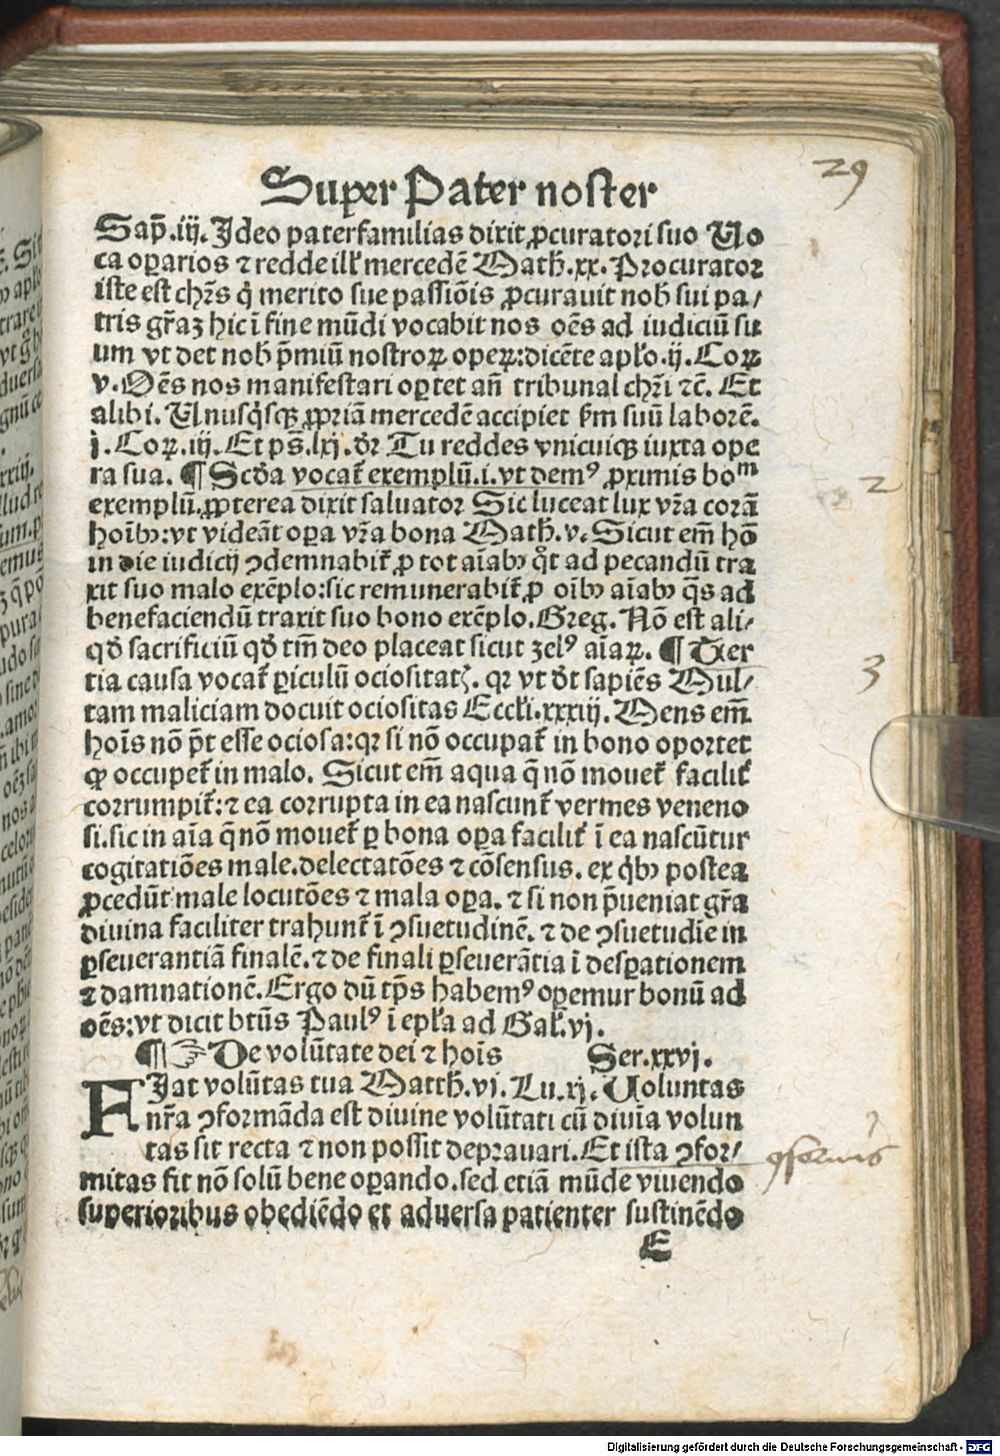 29
Super Pater noster
Sap̄.iij. Ideo paterfamilias dixit ꝓcuratori suo Uo
ca oꝑarios ⁊ redde ill' mercedē Math̄.xx. Procurator
iste est chr̄s q̇ merito sue passiōis ꝓcurauit nob̄ sui pa/
tris gr̄aꝫ hic ī fine mūdi vocabit nos oēs ad iudiciū su
um vt det nob̄ p̄miū nostroꝝ oꝑeꝝ:dicēte apl'o.ij. Coꝝ
v. Oēs nos manifestari oꝑtet an̄ tribunal chr̄i ⁊c̄. Et
alibi. Unusq̇sqꝫ ꝓpriā mercedē accipiet ẜm suū laborē.
j. Coꝝ.iij. Et ps̄.lxj.dr̄ Tu reddes vnicuiqꝫ iuxta ope
ra sua. ¶ Scd̄a vocat̄ exemplū.i.vt dem⁹ ꝓximis boᵐ
exemplū.ꝓpterea dixit saluator Sic luceat lux vr̄a corā
hoībꝫ:vt videāt oꝑa vr̄a bona Math̄.v. Sicut em̄ hō
in die iudicij ꝯdemnabit̄ ꝓ tot aīabꝫ q̊t ad pecandū tra
xit suo malo exēplo:sic remunerabit̄ ꝓ oībꝫ aīabꝫ q̄s ad
benefaciendū traxit suo bono exēplo. Greg. Nō est ali/
qd̄ sacrificiū qd̄ tm̄ deo placeat sicut zel⁹ aīaꝝ. ¶ Ter
tia causa vocat̄ ꝑiculū ociositatꝭ. qꝛ vt dt̄ sapiēs Mul/
tam maliciam docuit ociositas Eccl'i.xxxiij. Mens em̄
hoīs nō pt̄ esse ociosa:qꝛ si nō occupat̄ in bono oportet
ꝙ occupet̄ in malo. Sicut em̄ aqua q̄ nō mouet̄ facilit̄
corrumpit̄:⁊ ea corrupta in ea nascunt̄ vermes veneno
si.sic in aīa q̄ nō mouet̄ ꝑ bona oꝑa facilit̄ ī ea nascūtur
cogitatiōes male.delectatōes ⁊ cōsensus. ex q̇bꝫ postea
ꝓcedūt male locutōes ⁊ mala oꝑa. ⁊ si non p̄ueniat gr̄a
diuina faciliter trahunt̄ ī ꝯsuetudinē. ⁊ de ꝯsuetudīe in
ꝑseuerantiā finalē.⁊ de finali ꝑseuerātia ī desꝑationem
⁊ damnationē. Ergo dū tp̄s habem⁹ oꝑemur bonū ad
oēs:vt dicit btūs Paul⁹ ī epl'a ad Gal'.vj.
¶ ☞ De volūtate dei ⁊ hoīs Ser.xxvj.
FIat volūtas tua Matth̄.vj. Lu.xj. Uoluntas
nr̄a ꝯformāda est diuine volūtati cū diuīa volun
tas sit recta ⁊ non possit deprauari. Et ista ꝯfor/
mitas fit nō solū bene oꝑando.sed etiā mūde viuendo
superioribus obediēdo et aduersa patienter sustinēdo
E
2
3
Digitalisierung gefördert durch die Deutsche Forschungsgemeinschaft - DFG